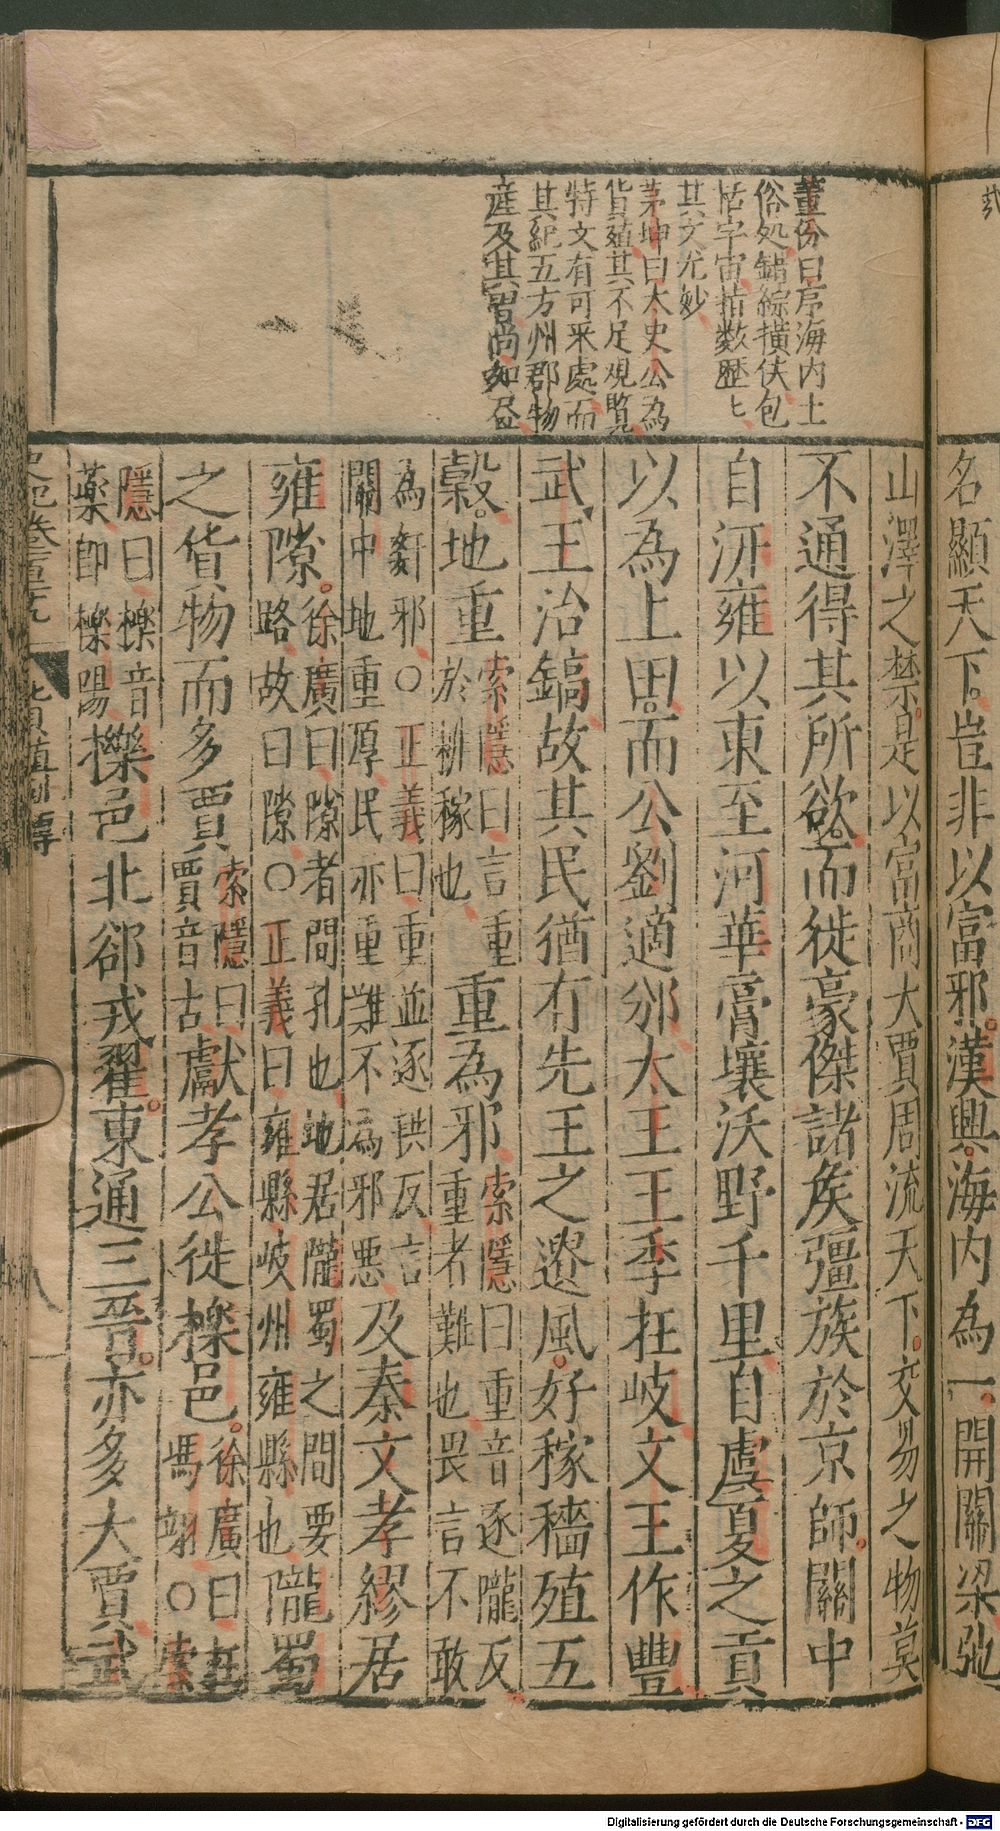 名顯天下豈非以富邪漢興海内為一開關梁弛
董份曰序海内土
俗処錯綜橫侠包
括宇宙指数歴匕
其文尤妙
茅坤曰太史公為
貨殖其不足覌覧
特文有可采處而
其紀五方州郡物
產及其習尚如
山澤之禁是以富商大賈周流天下交易之物莫
不通得其所欲而徙豪傑諸矦彊族於京師關中
自汧雍以東至河華膏壤沃野千里自虞夏之貢
以為上田而公劉適邠太王王季在岐文王作豐
武王治鎬故其民猶有先王之遺風好稼穡殖五
穀地重索隱曰言重於耕稼也重為邪索隱曰重音逐隴反重者難也畏言不敢
為姧邪〇正義曰重並逐拱反言關中地重厚民亦重難不為邪惡及秦文孝繆居
雍隙徐廣曰隙者間孔也地居隴蜀之間要路故曰隙〇正義曰雍縣岐州雍縣也隴蜀
之貨物而多賈索隱曰賈音古獻孝公徙櫟邑徐廣曰在馮翊〇索
隱曰櫟音藥即櫟陽櫟邑北郤戎翟東通三晉亦多大賈武
史記卷一百二十九 貨殖列傳 八
Digitalisierung gefördert durch die Deutsche Forschungsgemeinschaft - DFG